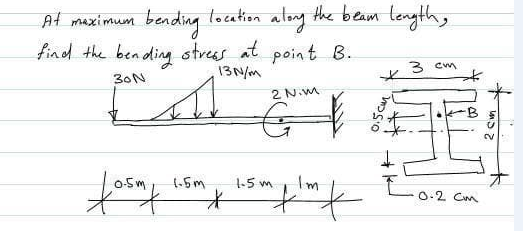 At maximum bending location along the beam length,
find the bending stress at point B.
30N
13N/m
2 N.m
3 cm
0.5 cm
B
2 cm
0.2 cm
0.5m
1.5m
1.5 m
1m